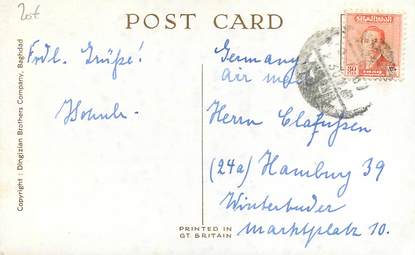 POST CARD
Frdl. Grüße!
Germany
air mail
Herrn Clafußen
(24a) Hamburg 39
Winterhuder
Marktplatz 10.
Copyright : Dingizian Brothers Company, Baghdad
PRINTED IN
GT. BRITAIN